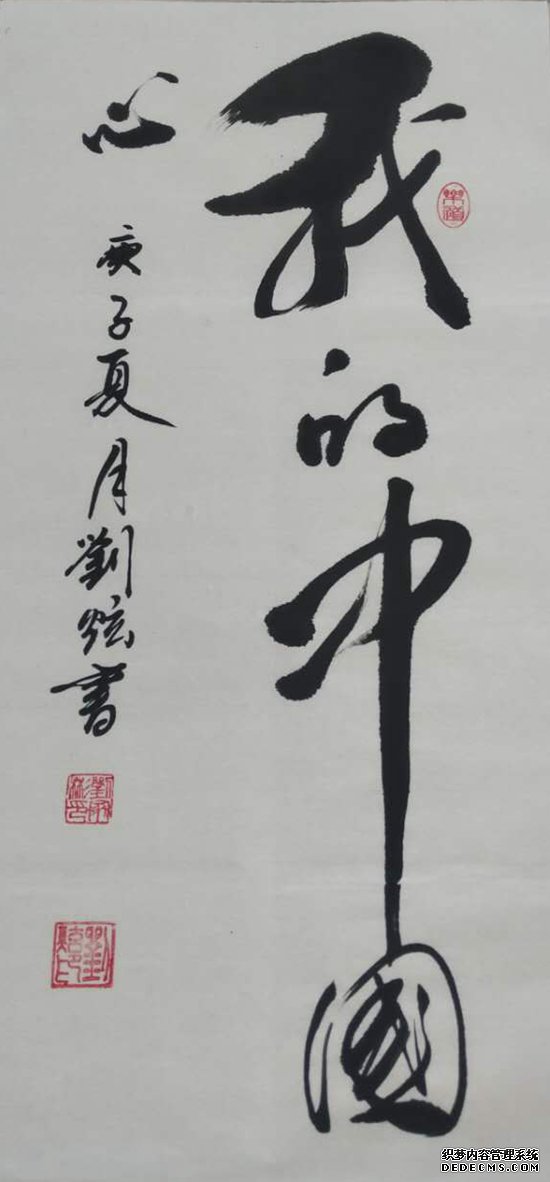 我的中國
心
庚子夏月劉炫書
织梦内容管理系统
DEDECMS.COM